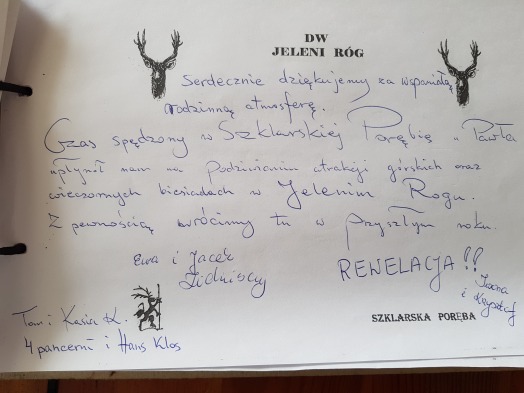 DW
JELENI RÓG
Serdecznie dziękujemy za wspaniałą
rodzinną atmosferę.
Czas spędzony w Szklarskiej Porębie u Pawła
upłynął nam na podziwianiu atrakcji górskich oraz
wieczornych biesiadach w Jelenim Rogu.
Z pewnością wrócimy tu w przyszłym roku.
Ewa i Jacek
REWELACJA!!
Iwona
i Krzysztof
SZKLARSKA PORĘBA
Tom i Kasia K.
4 pancerni i Hans Klos